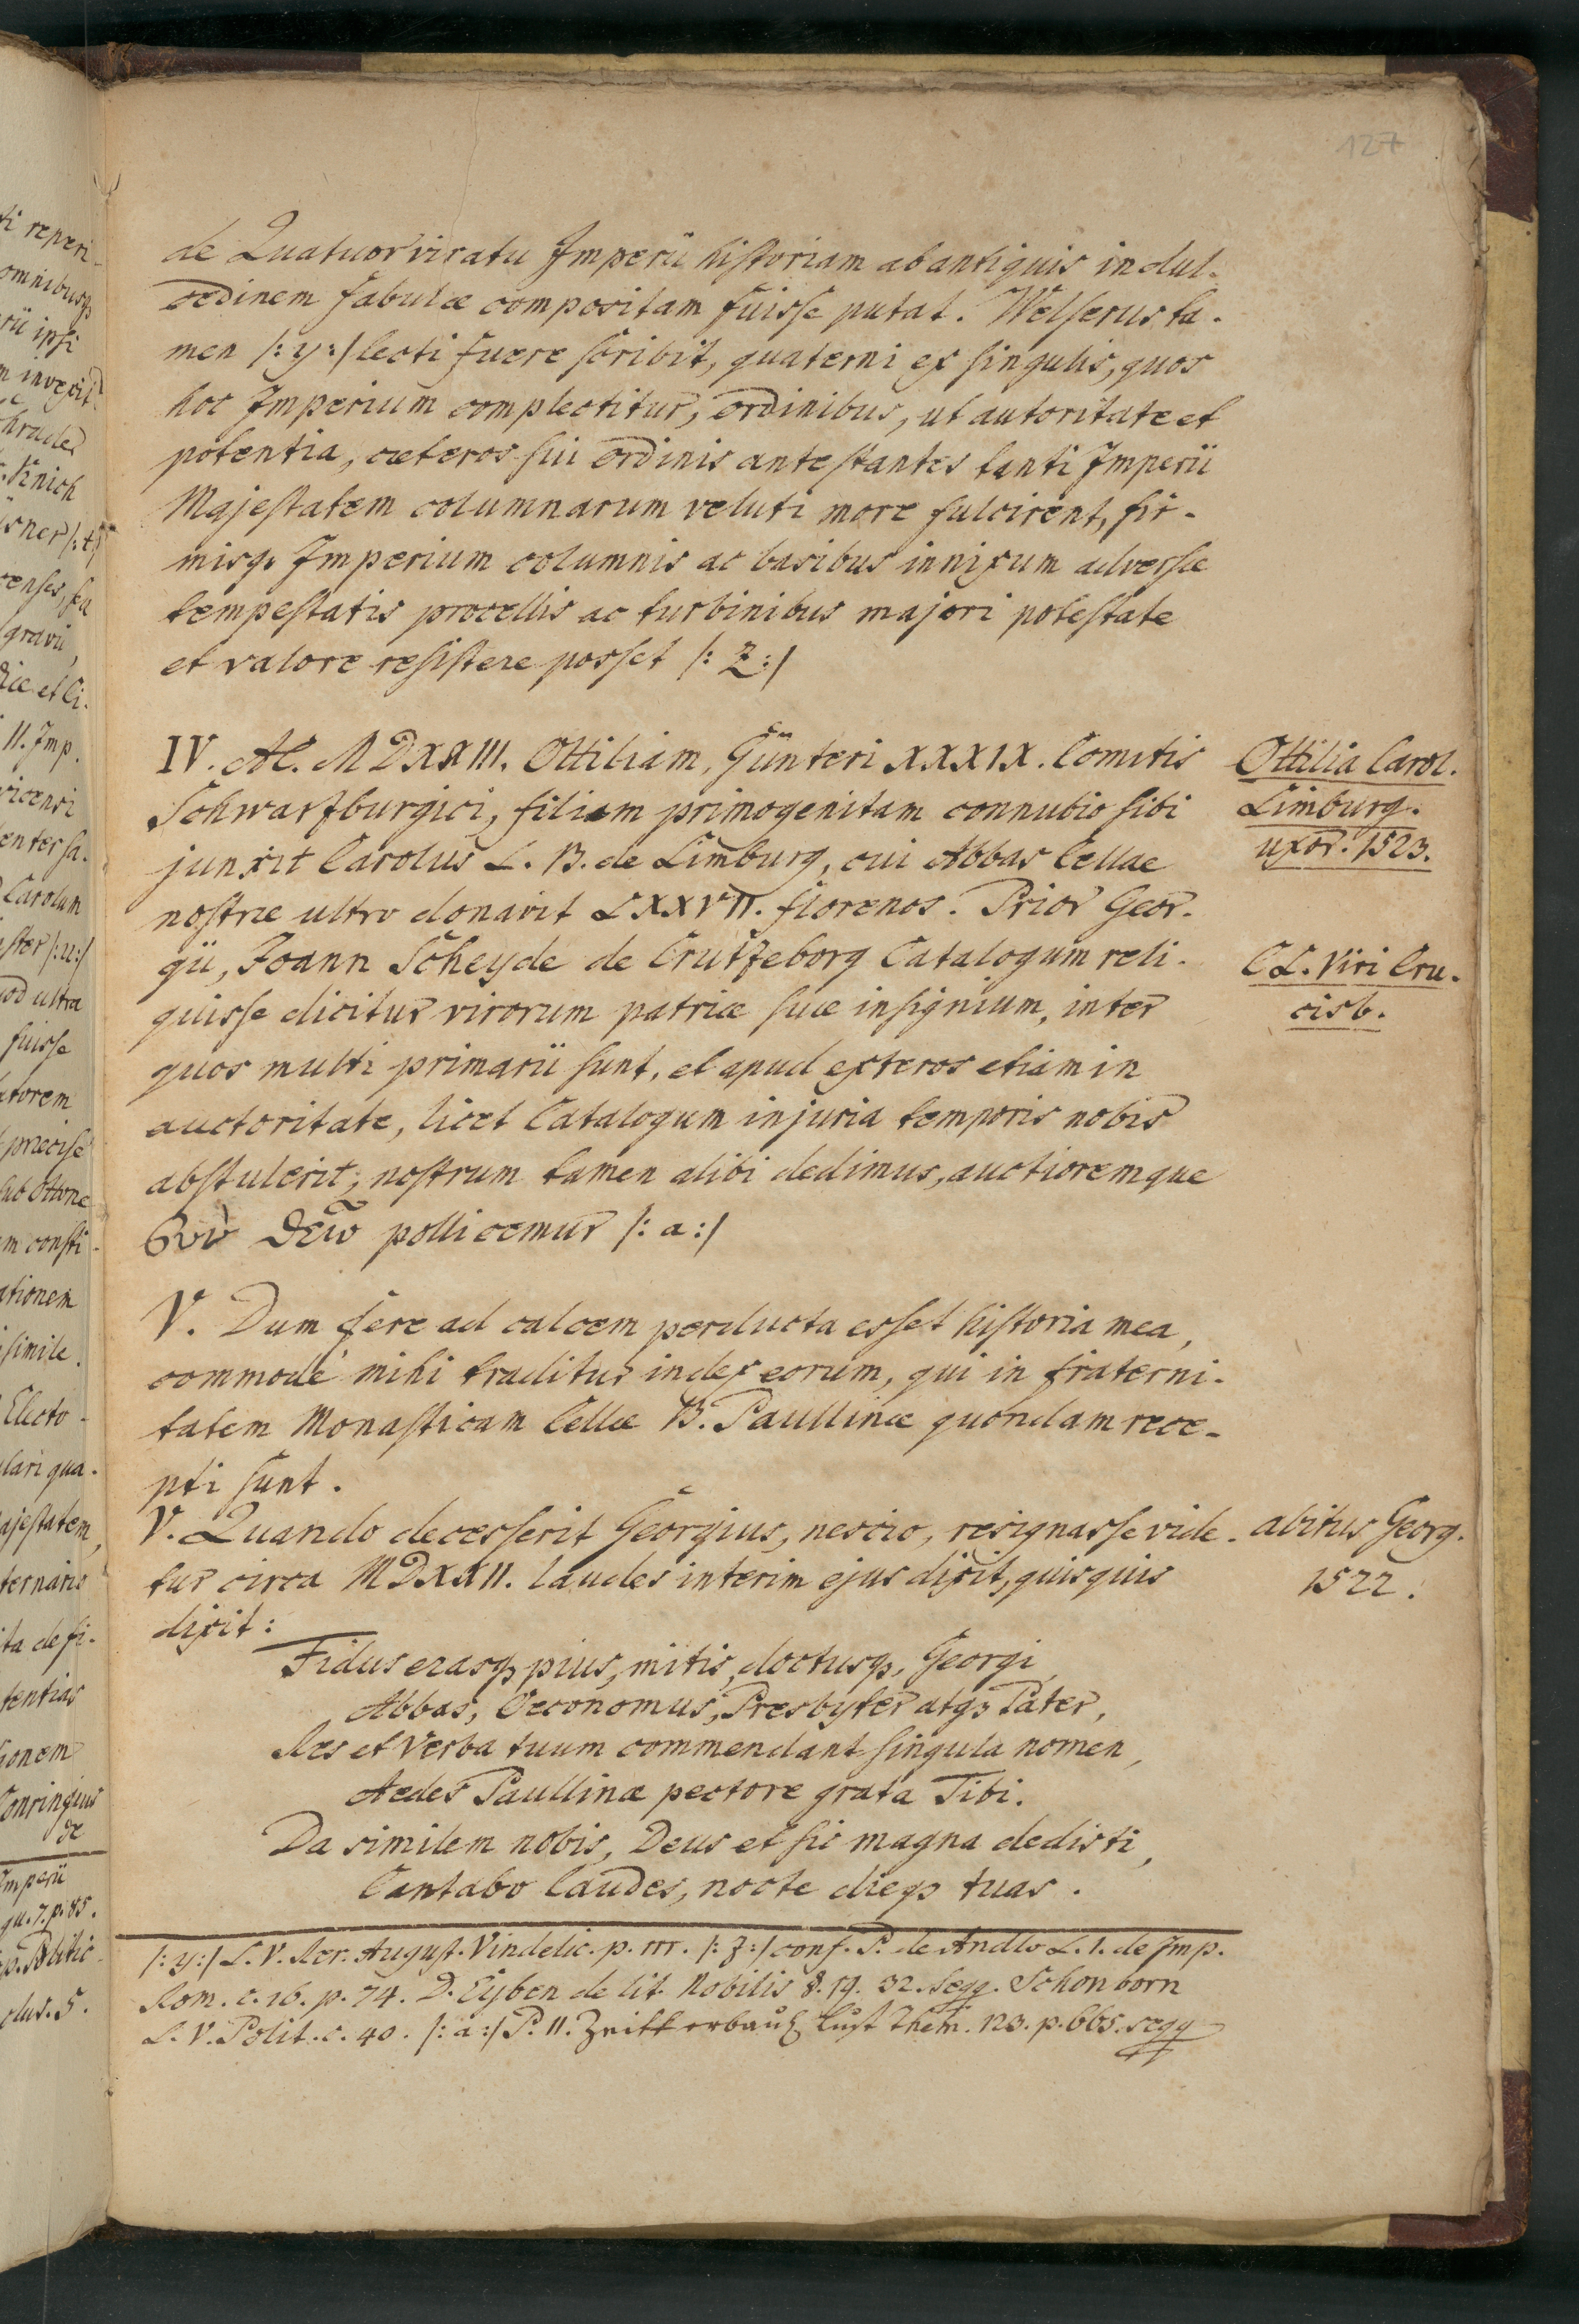 127
de Quatuorviratu Imperii historiam ab antiquis in dul-
cedinem fabulæ compositam fuisse putat. Welserus ta-
men /: y :/ lecti fuere scribit, quaterni ex singulis, quos
hoc Imperium complectitur, ordinibus, ut autoritate et
potentia, cæteros sui ordinis antestantes tanti Imperii
Majestatem columnarum veluti more fulcirent, fir-
misq. Imperium columnis ac basibus innixum adversæ
tempestatis procellis ac turbinibus majori potestate
et valore resistere posset /: Z :/
IV. AC. MDXXIII. Ottiliam, Günteri XXXIX. Comitis
Schwartzburgici, filiam primogenitam connubio sibi
junxit Carolus L. B. de Limburg, cui Abbas Cellae
nostræ ultro donavit LXXVII. florenos. Prior Geor-
gii, Joann Scheyde de Crutzeborg Catalogum reli-
quisse dicitur virorum patriæ suæ insignium, inter
quos multi primarii sunt, et apud exteros etiam in
auctoritate, licet Catalogum injuria temporis nobis
abstulerit; nostrum tamen alibi dedimus, auctioremque
pollicemur /: a :/
Ottilia Carol.
Limburg.
uxor. 1523.
CL. Viri Cru-
cisb.
V. Dum fere ad calcem perducta esset historia mea,
commodè mihi traditur index eorum, qui in fraterni-
tatem Monasticam Cellæ B. Paullinæ quondam rece-
pti sunt.
V. Quando decesserit Georgius, nescio, resignasse vide-
tur circa MDXXII. laudes interim ejus dixit, quisquis
dixit:
abitus Georg.
1522.
Fidus erasq; pius, mitis, doctusq;, Georgi,
Abbas, Oeconomus, Presbyter atq; Pater,
Res et Verba tuum commendant singula nomen,
Aedes Paullinæ pectore grata Tibi.
Da similem nobis, Deus et sic magna dedisti,
Cantabo laudes, nocte dieq; tuas.
/: y :/ L. V. Rer. August. Vindelic. p. m. /: z :/ conf. P. de Andlo L. 1. de Imp.
Rom. c. 16. p. 74. D. Eyben de tit. Nobilis §. 19. 32. seqq. Schonborn
L. V. Polit. c. 40. /: a :/ P. II. Lust Them. 123. p. 665. seqq